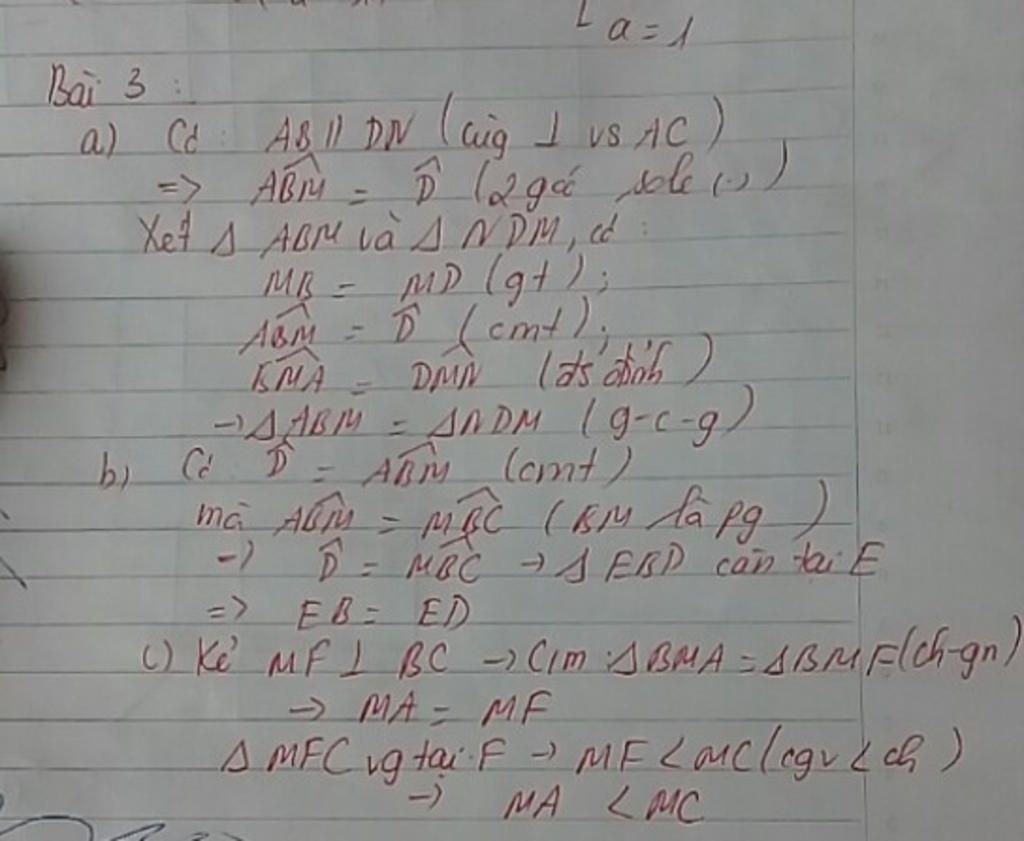 a = 1
Bài 3 :
a) Có : AB // DN (cùg ⊥ vs AC)
=> ABM̂ = D̂ (2 góc sole (..))
Xét Δ ABM và Δ NDM, có :
MB = MD (gt);
ABM̂ = D̂ (cmt);
BMÂ = DMN̂ (đối đỉnh)
-> Δ ABM = Δ NDM (g-c-g)
b) Có D̂ = ABM̂ (cmt)
mà ABM̂ = MBĈ (BM là pg)
-> D̂ = MBĈ -> Δ EBD cân tại E
=> EB = ED
c) Kẻ MF ⊥ BC -> C/m : Δ BMA = Δ BMF (ch-gn)
-> MA = MF
Δ MFC vg tại F -> MF < MC (cgv < ch)
-> MA < MC